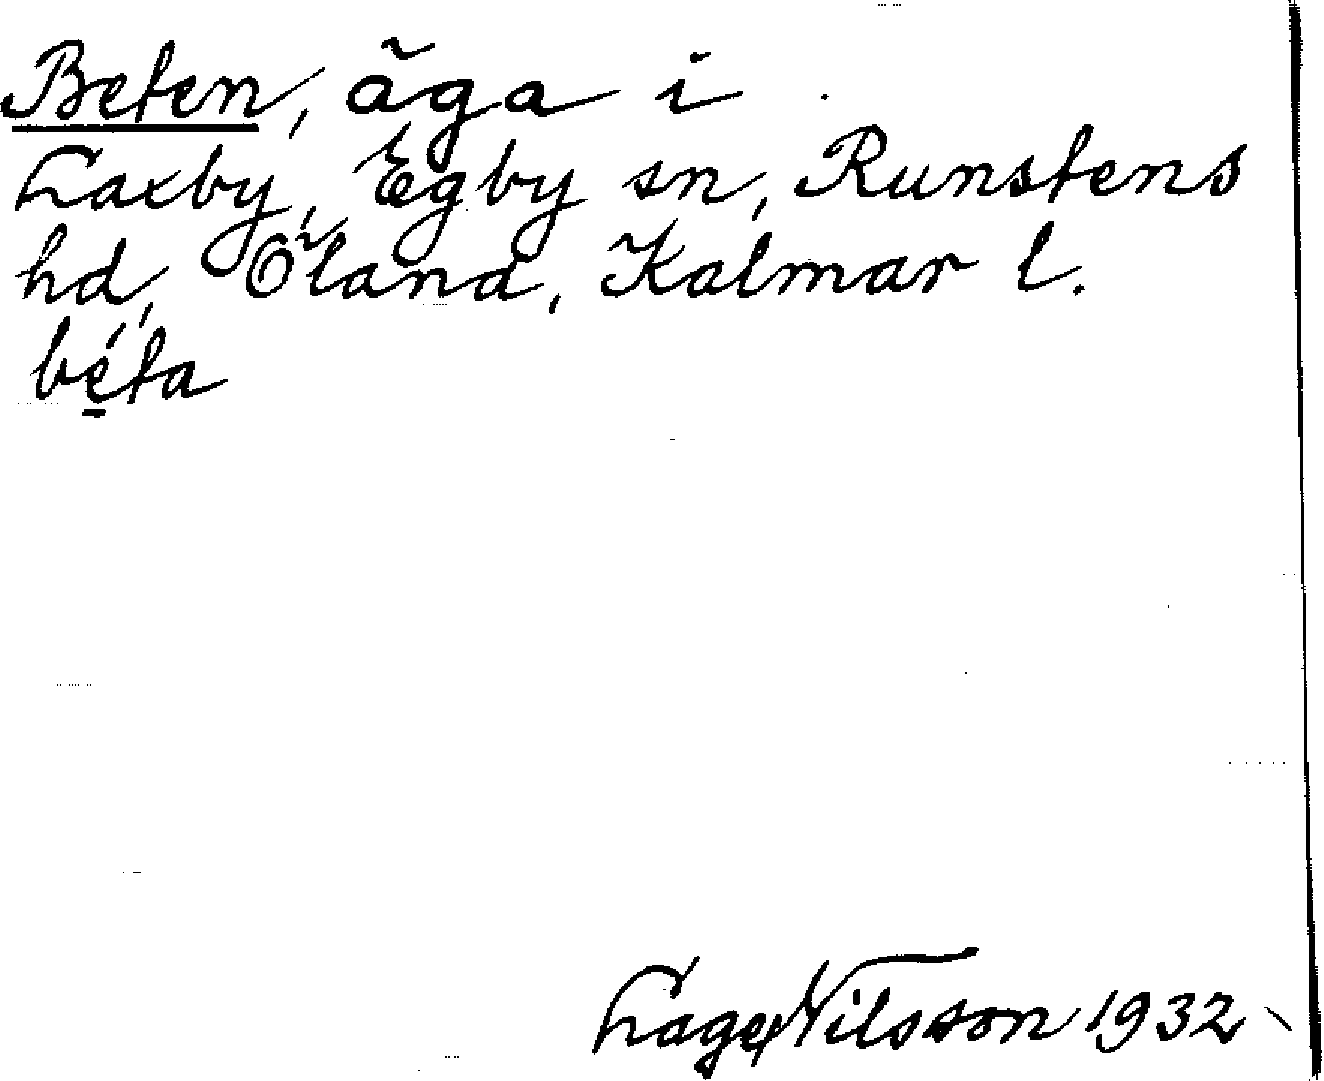 Beten, äga i
Laxby, Egby sn, Runstens
hd, Öland, Kalmar l.
bé̱ta
Lage Nilsson 1932